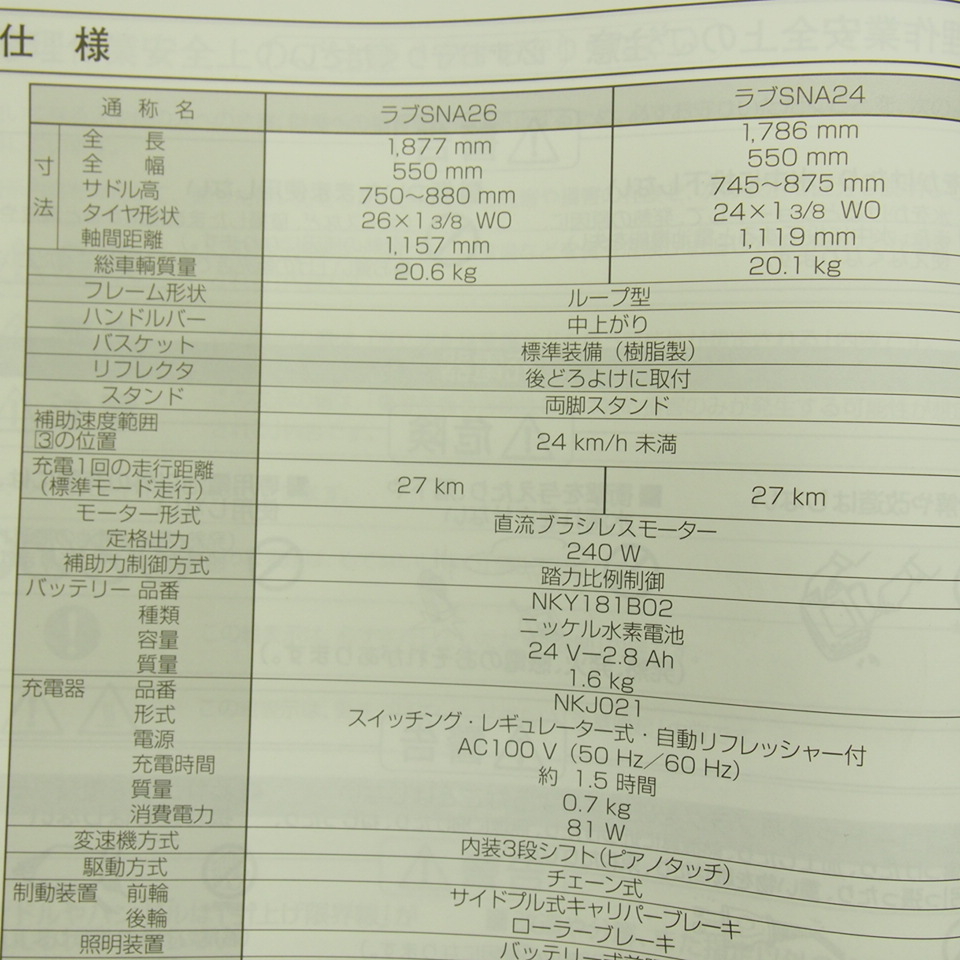 仕様
通称名 ラブSNA26 ラブSNA24
寸法 全長 1,877 mm 1,786 mm
全幅 550 mm 550 mm
サドル高 750〜880 mm 745〜875 mm
タイヤ形状 26×1 3/8 WO 24×1 3/8 WO
軸間距離 1,157 mm 1,119 mm
総車輌質量 20.6 kg 20.1 kg
フレーム形状 ループ型
ハンドルバー 中上がり
バスケット 標準装備（樹脂製）
リフレクタ 後どろよけに取付
スタンド 両脚スタンド
補助速度範囲
3の位置 24 km/h 未満
充電1回の走行距離
（標準モード走行） 27 km 27 km
モーター形式 直流ブラシレスモーター
定格出力 240 W
補助力制御方式 踏力比例制御
バッテリー 品番 NKY181B02
種類 ニッケル水素電池
容量 24 V−2.8 Ah
質量 1.6 kg
充電器 品番 NKJ021
形式 スイッチング・レギュレーター式・自動リフレッシャー付
電源 AC100 V（50 Hz／60 Hz）
充電時間 約 1.5 時間
質量 0.7 kg
消費電力 81 W
変速機方式 内装3段シフト(ピアノタッチ)
駆動方式 チェーン式
制動装置 前輪 サイドプル式キャリパーブレーキ
後輪 ローラーブレーキ
照明装置 バッテリー式前